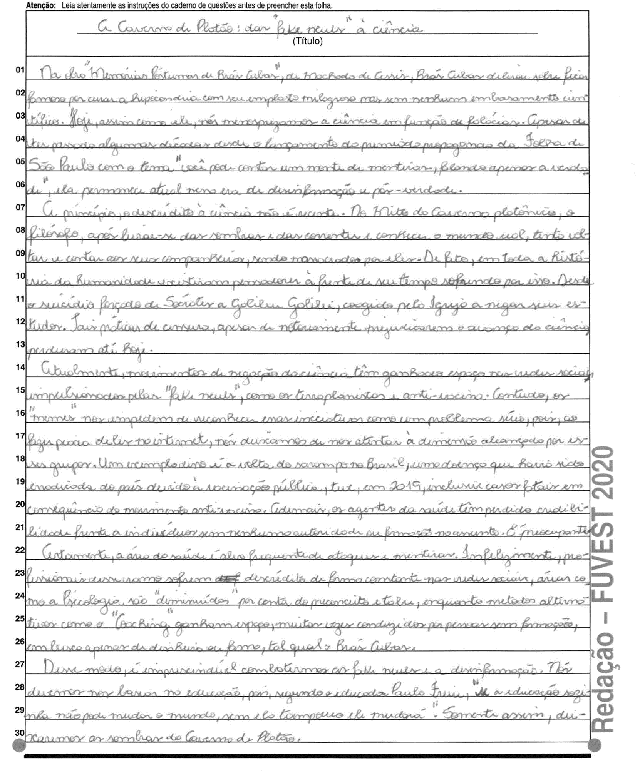 Atenção: Leia atentamente as instruções do caderno de questões antes de preencher esta folha.
A Caverna de Platão: das "fake news" à ciência
(Título)
01 Na obra "Memórias Póstumas de Brás Cubas", de Machado de Assis, Brás Cubas delirou sobre ficar
02 famoso por curar a hipocondria com seu emplasto milagroso mas sem nenhum embasamento cien-
03 tífico. Hoje, assim como ele, nós menosprezamos a ciência em função de falácias. Apesar de
04 ter passado algumas décadas desde o lançamento da premiada propaganda da Folha de
05 São Paulo com o tema "você pode contar um monte de mentiras, falando apenas a verda-
06 de", ela permanece atual nessa era de desinformação e pós-verdade.
07 A princípio, o descrédito à ciência não é recente. No Mito da Caverna platônico, o
08 filósofo, após livrar-se das sombras e das correntes e conhecer o mundo real, tenta vol-
09 tar e contar aos seus companheiros, sendo por eles. De fato, em toda a histó-
10 ria da humanidade existiram pensadores à frente de seu tempo sofrendo por isso. Desde
11 o suicídio forçado de Sócrates a Galileu Galilei, coagido pela Igreja a negar seus es-
12 tudos. Tais práticas de censura, apesar de notoriamente prejudicarem o avanço da ciência,
13 perduram até hoje.
14 Atualmente, movimentos de negação da ciência têm ganhado espaço nas redes sociais,
15 impulsionados pelas "fake news", como os terraplanistas e anti-vacina. Contudo, os
16 "memes" nos impedem de reconhecer essas iniciativas como um problema sério, pois, ao
17 fazer piada deles na internet, nós deixamos de nos atentar à dimensão alcançada por es-
18 ses grupos. Um exemplo disso é a volta do sarampo no Brasil, uma doença que havia sido
19 erradicada do país devido à vacinação pública, teve, em 2019, inclusive casos fatais em
20 consequência do movimento anti-vacina. Ademais, os agentes da saúde têm perdido credibi-
21 lidade frente a indivíduos sem nenhuma autoridade ou formação no assunto. É preocupante.
22 Certamente, a área da saúde é alvo frequente de ataques e mentiras. Infelizmente, pro-
23 fissionais desse ramo sofrem descrédito de forma constante nas redes sociais, áreas co-
24 mo a Psicologia, são "diminuídas" por conta de preconceito e tabu, enquanto métodos alterna-
25 tivos como o "Coaching" ganham espaço, muitas vezes conduzidos por pessoas sem formação,
26 em busca apenas de dinheiro ou fama, tal qual Brás Cubas.
27 Desse modo, é imprescindível combatermos as fake news e a desinformação. Nós
28 devemos nos basear na educação, pois, segundo o educador Paulo Freire, "se a educação sozi-
29 nha não pode mudar o mundo, sem ela tampouco ele mudará". Somente assim, dei-
30 xaremos as sombras da Caverna de Platão.
Redação – FUVEST 2020